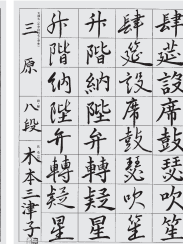 肆筵設席鼓瑟吹笙
肆筵設席鼓瑟吹笙
升階納陛弁轉疑星
升階納陛弁轉疑星
三原 八段 木本三津子